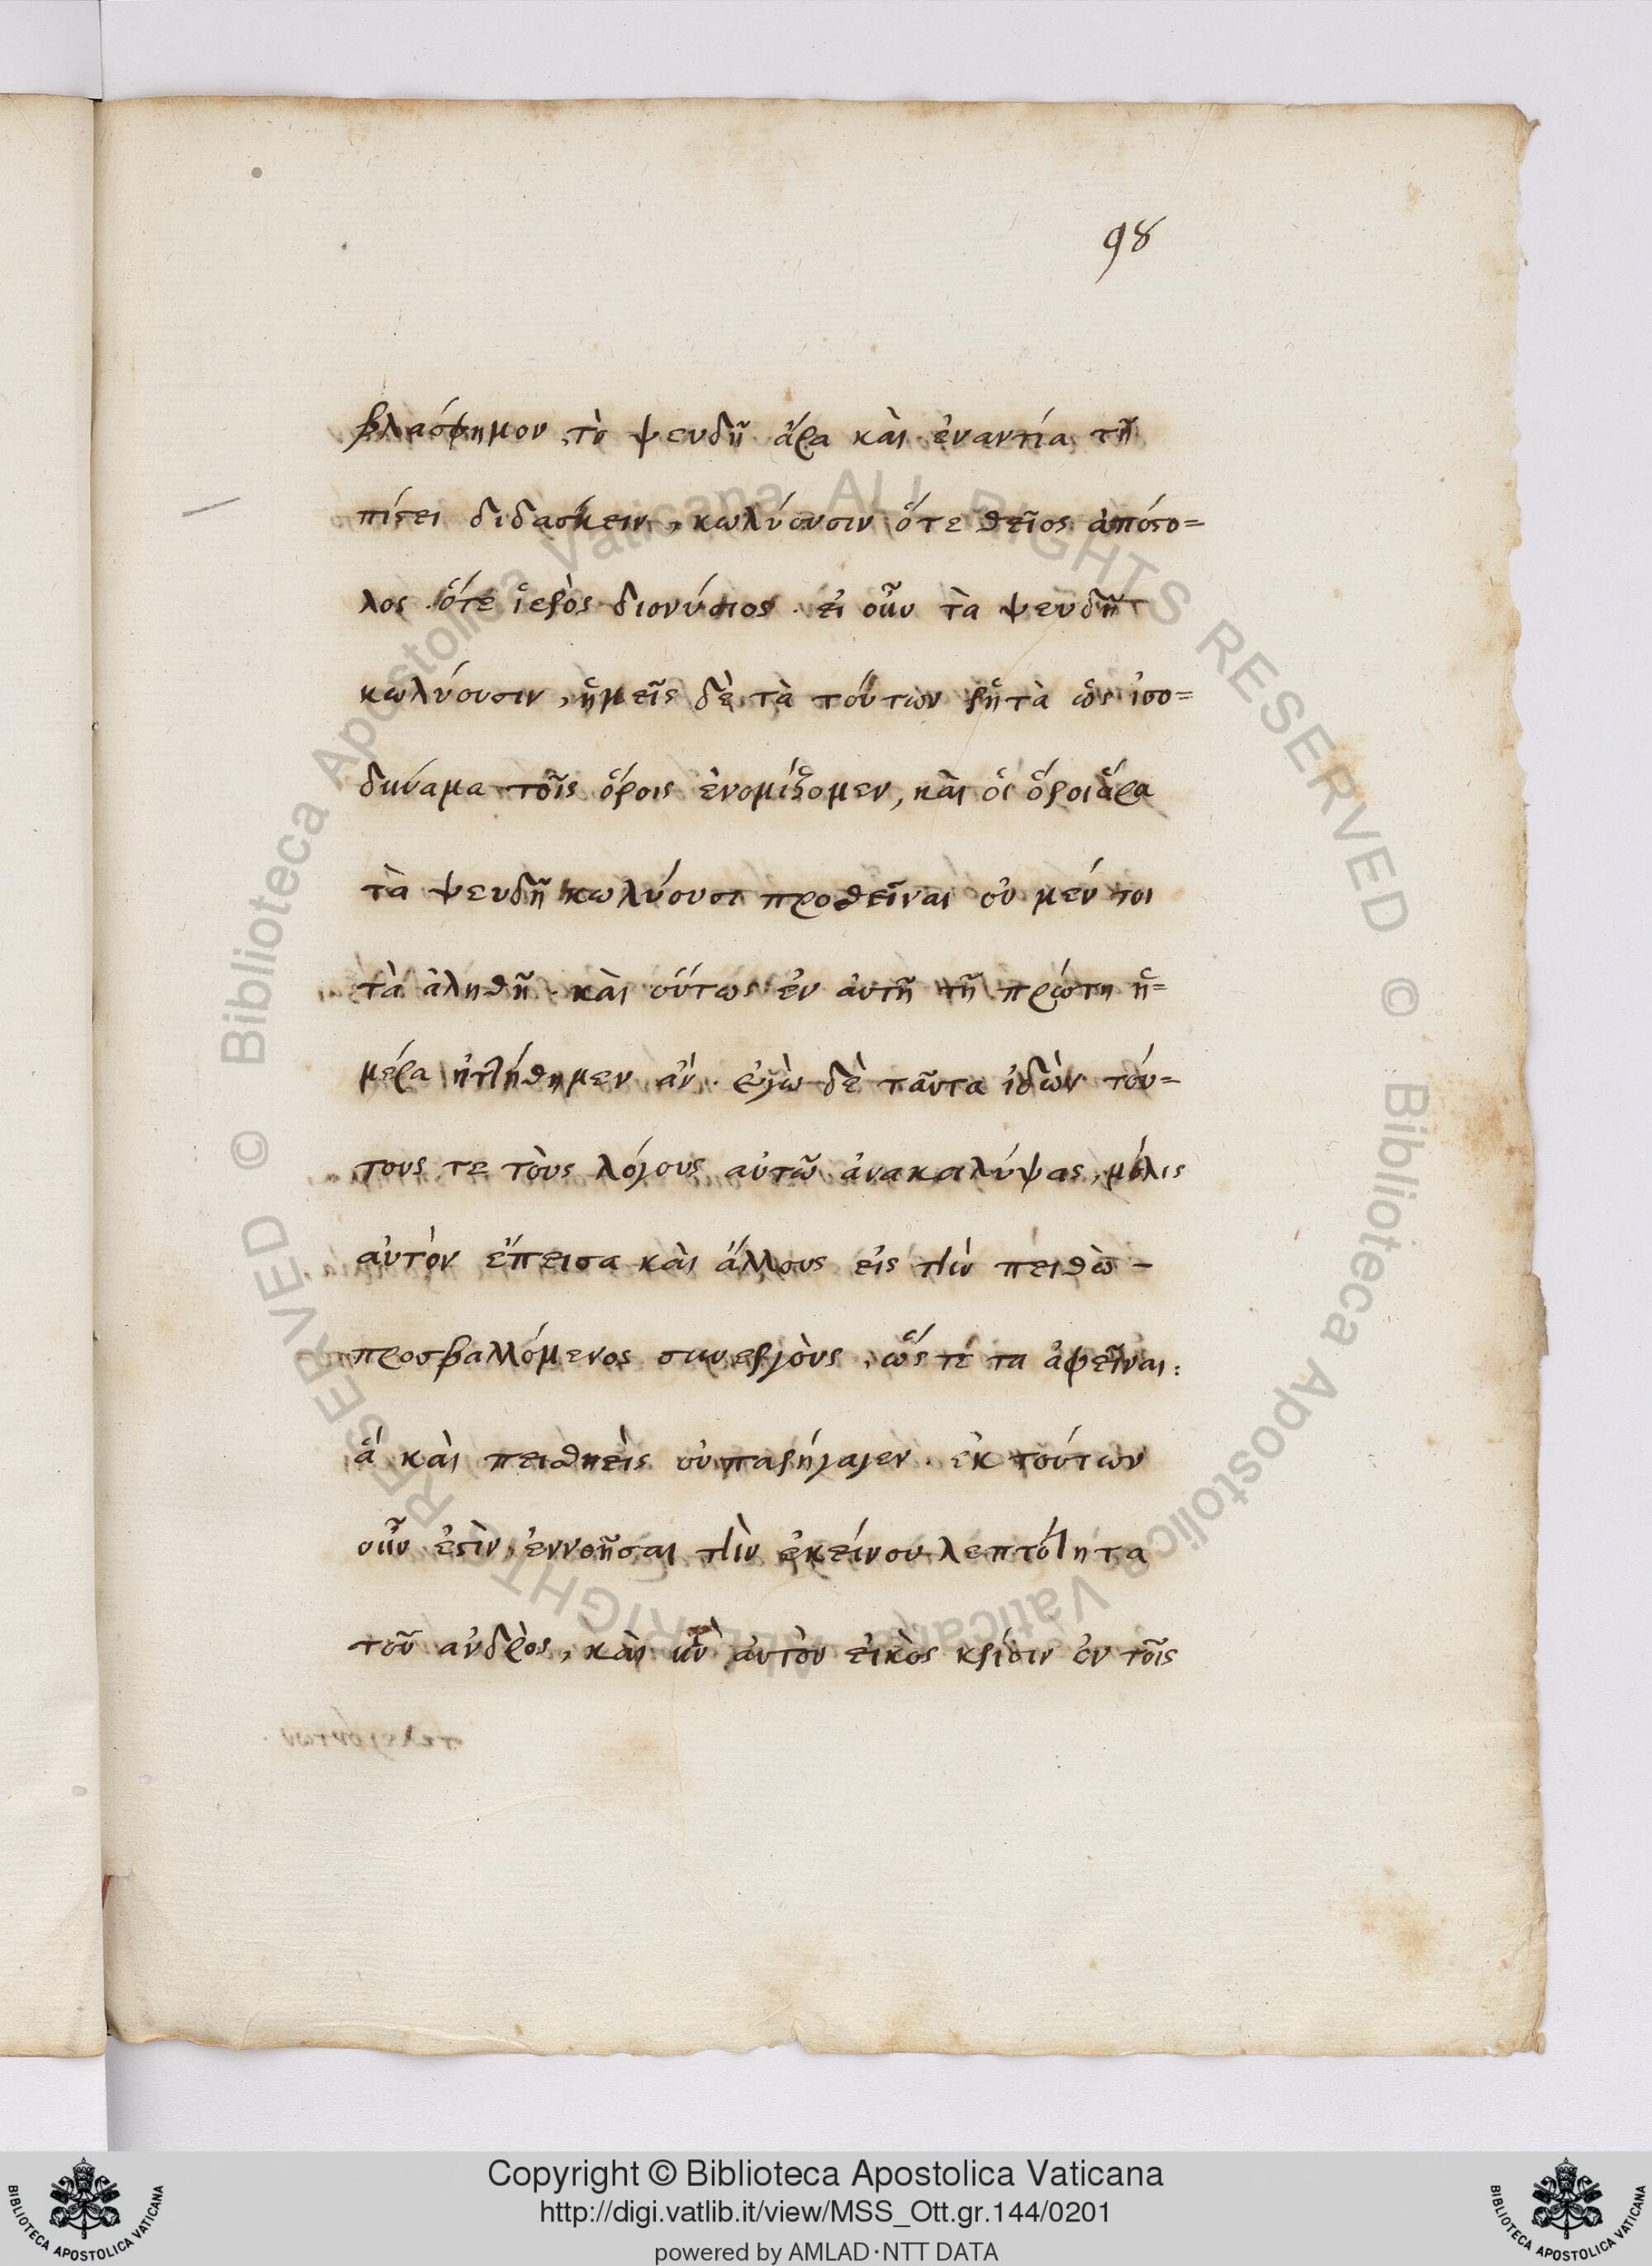 98
βλάσφημον, τὸ ψευδῆ ἄρα καὶ ἐναντία τῆ
πίστει διδάσκειν, κωλύουσιν ὅτε θεῖος ἀπόστο=
λος ὅτε ἱερὸς διονύσιος. εἰ οὖν τὰ ψευδῆ
κωλύουσιν, ἡμεῖς δὲ τὰ τούτων ῥητὰ ὡς ἰσο=
δύναμα τοῖς ὅροις ἐνομίζομεν, καὶ οἱ ὅροι ἄρα
τὰ ψευδῆ κωλύουσι προθεῖναι οὐ μέν τοι
τὰ ἀληθῆ. καὶ οὕτως ἐν ἀυτῆ τῆ πρώτη ἡ=
μέρα ἡττήθημεν ἄν. ἐγὼ δὲ ταῦτα ἰδὼν τού=
τους τε τοὺς λόγους αὐτῶ ἀνακαλύψας, μόλις
αὐτὸν ἔπεισα καὶ ἄλλους εἰς τὴν πειθὼ –
προσβαλλόμενος συνεργοὺς, ὥς τέ τα ἀφεῖναι:
ἃ καὶ πειθηεὶς οὐ παρήγαγεν. ἐκ τούτων
οὖν ἐστὶν, ἐννοῆσαι τὴν ἐκείνου λεπτότητα
τοῦ ἀνδρὸς, καὶ ἀυτὸν εἰκὸς κρίσιν ἐν τοῖς
© Biblioteca Apostolica Vaticana ALL RIGHTS RESERVED © Biblioteca Apostolica Vaticana ALL RIGHTS RESERVED
Copyright © Biblioteca Apostolica Vaticana
http://digi.vatlib.it/view/MSS_Ott.gr.144/0201
powered by AMLAD·NTT DATA
BIBLIOTECA APOSTOLICA VATICANA
BIBLIOTECA APOSTOLICA VATICANA